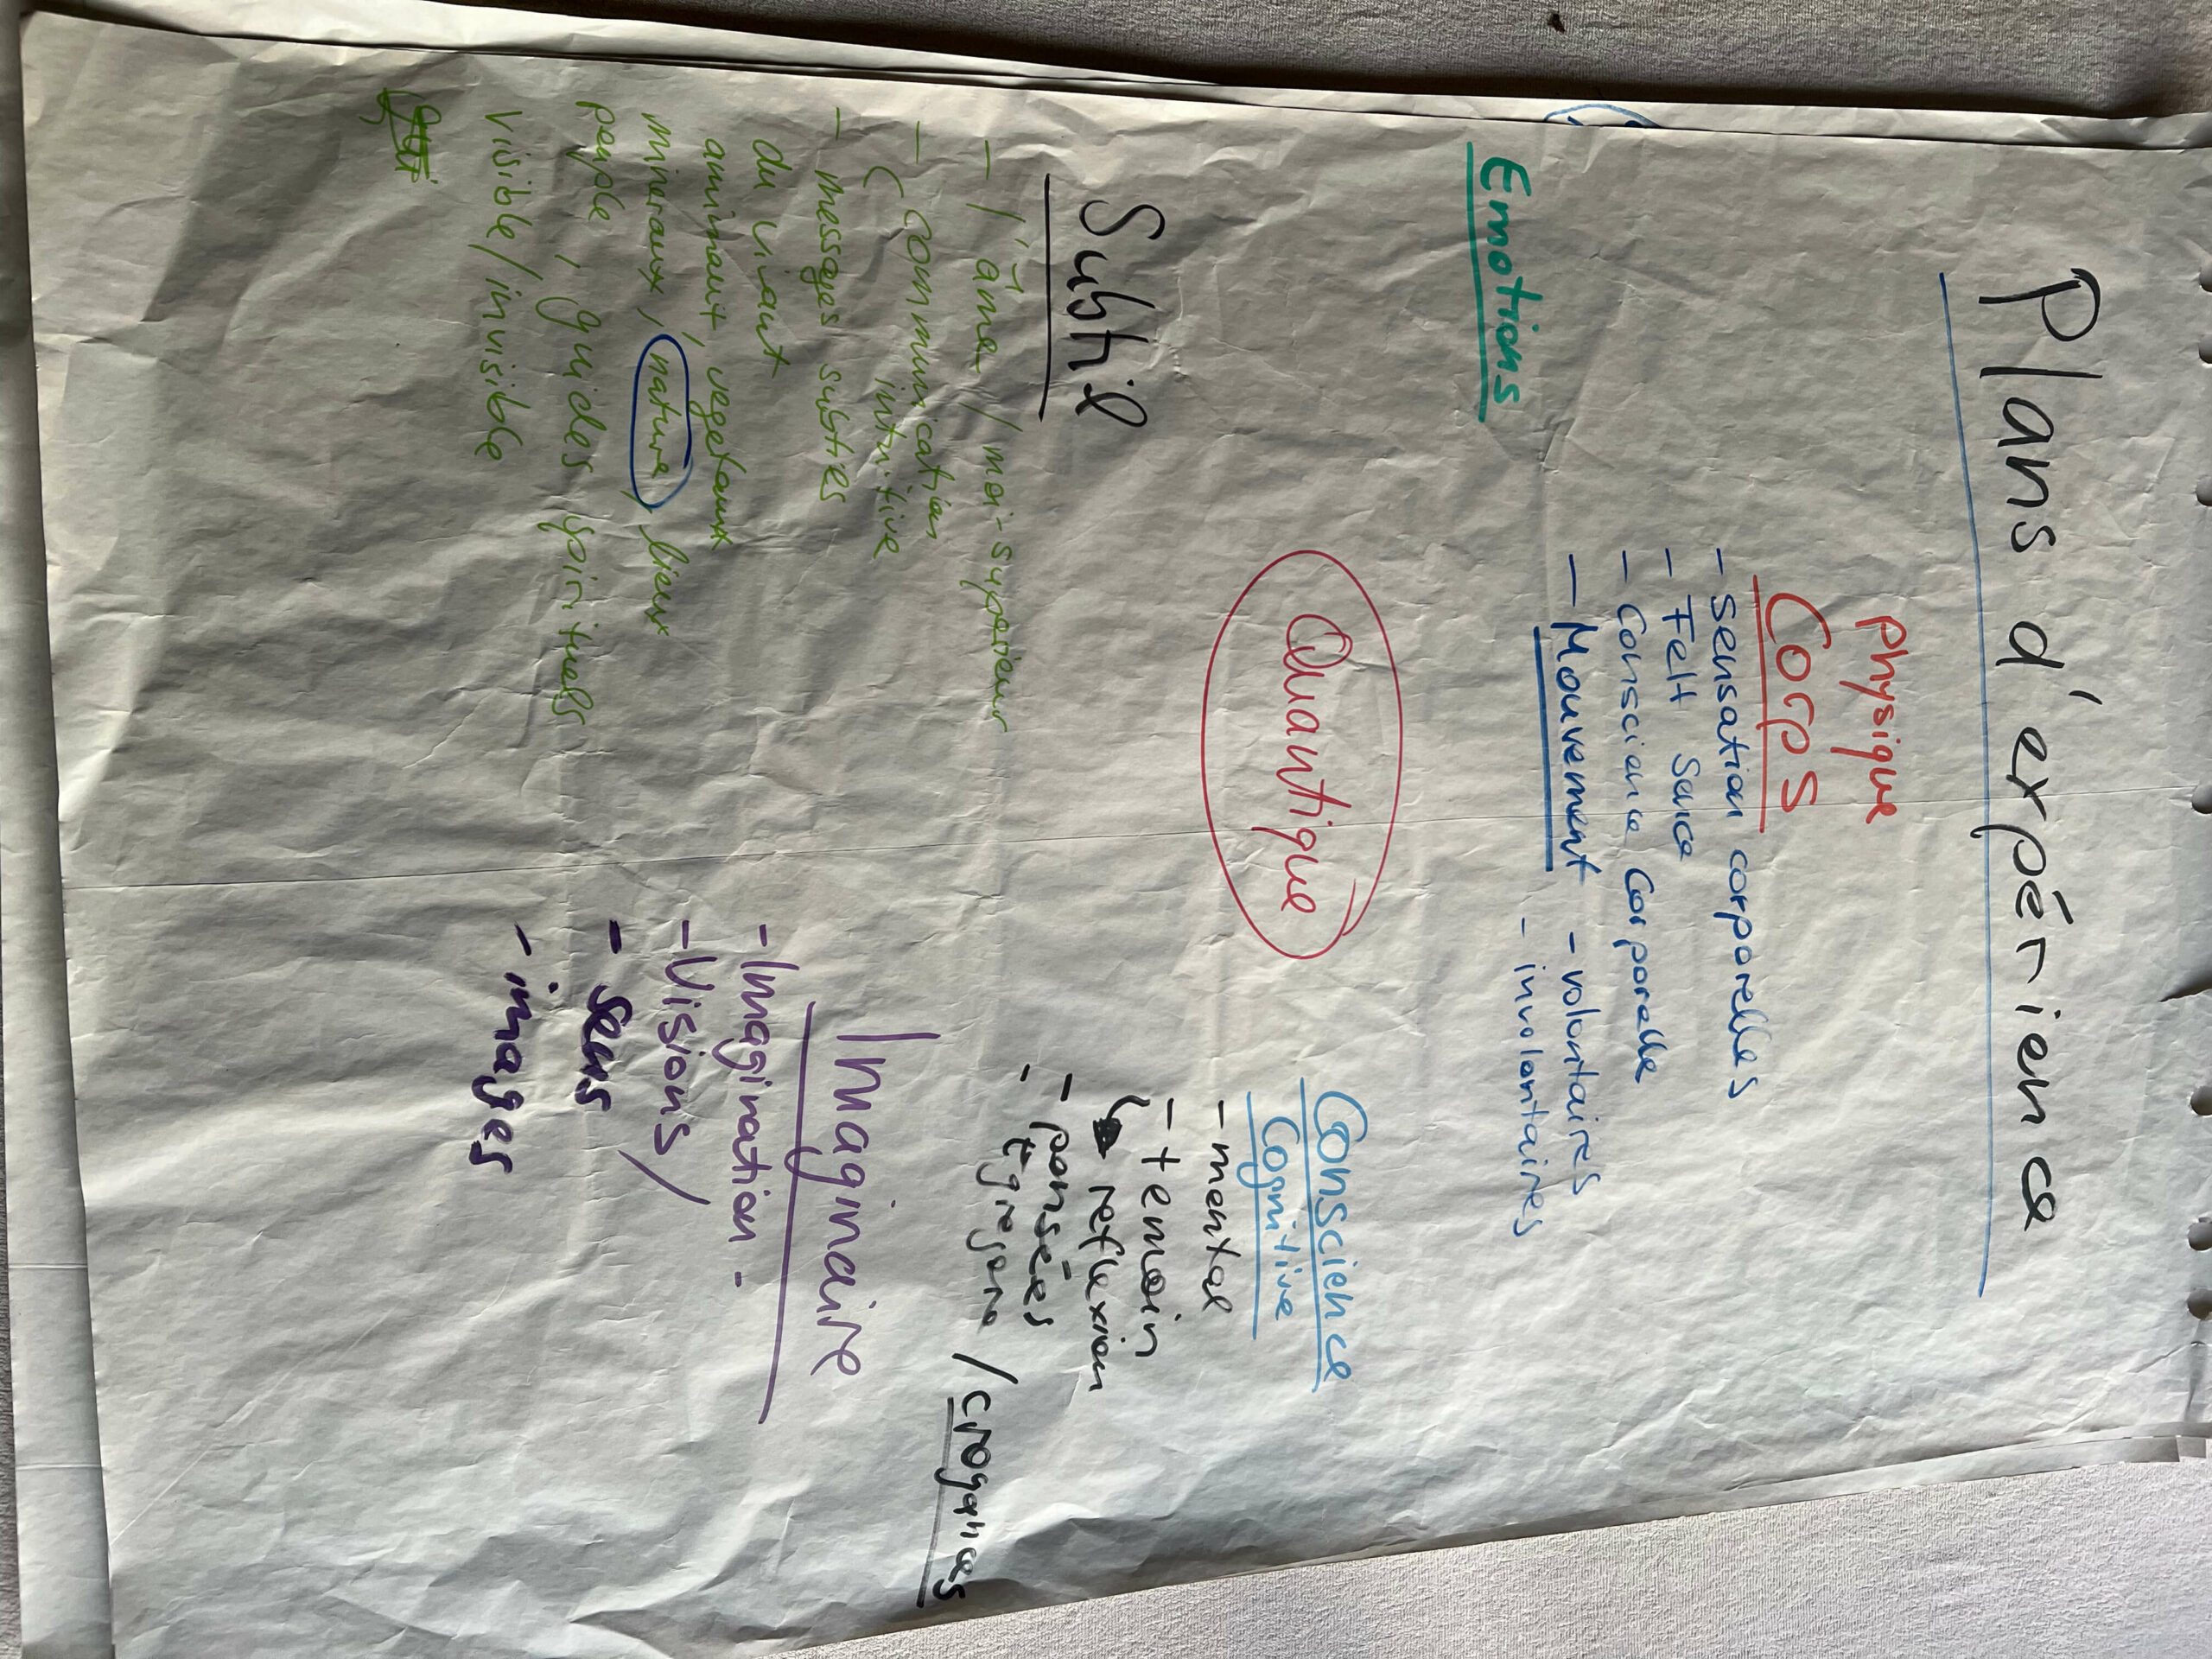 Plans d'expérience
Physique
Corps
- Sensation corporelles
- Felt Sense
- Conscience Corporelle
- Mouvement - volontaires
- involontaires
Emotions
Quantique
Conscience
Cognitive
- mental
- temoin
↳ reflexion
- pensées
- Egregore / croyances
Subtil
- l'âme / moi-superieur
- Communication
intuitive
- messages subtiles
du vivant
animaux, vegetaux
mineraux, nature, lieux
peuple, guides spirituels
visible/invisible
Imaginaire
- Imagination -
- Visions /
- sens
- images